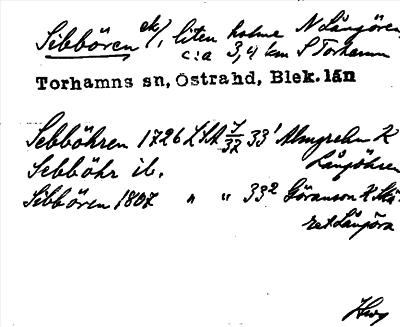 Sibbören ek/, liten holme N Långören,
c:a 3,4 km S Torhamn
Torhamns sn, Östrahd, Blek. län
Sebböhren 1726 LSA 7/32 33¹ Almgrehn K
Långöhren
Sebböhr ib.
Sibbören 1807 " " 33² Göranson K Skä-
ret Långöra